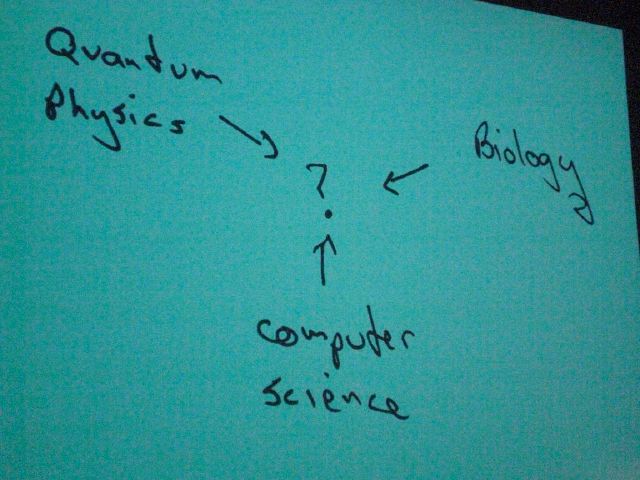 Quantum
Physics
Biology
?
computer
science